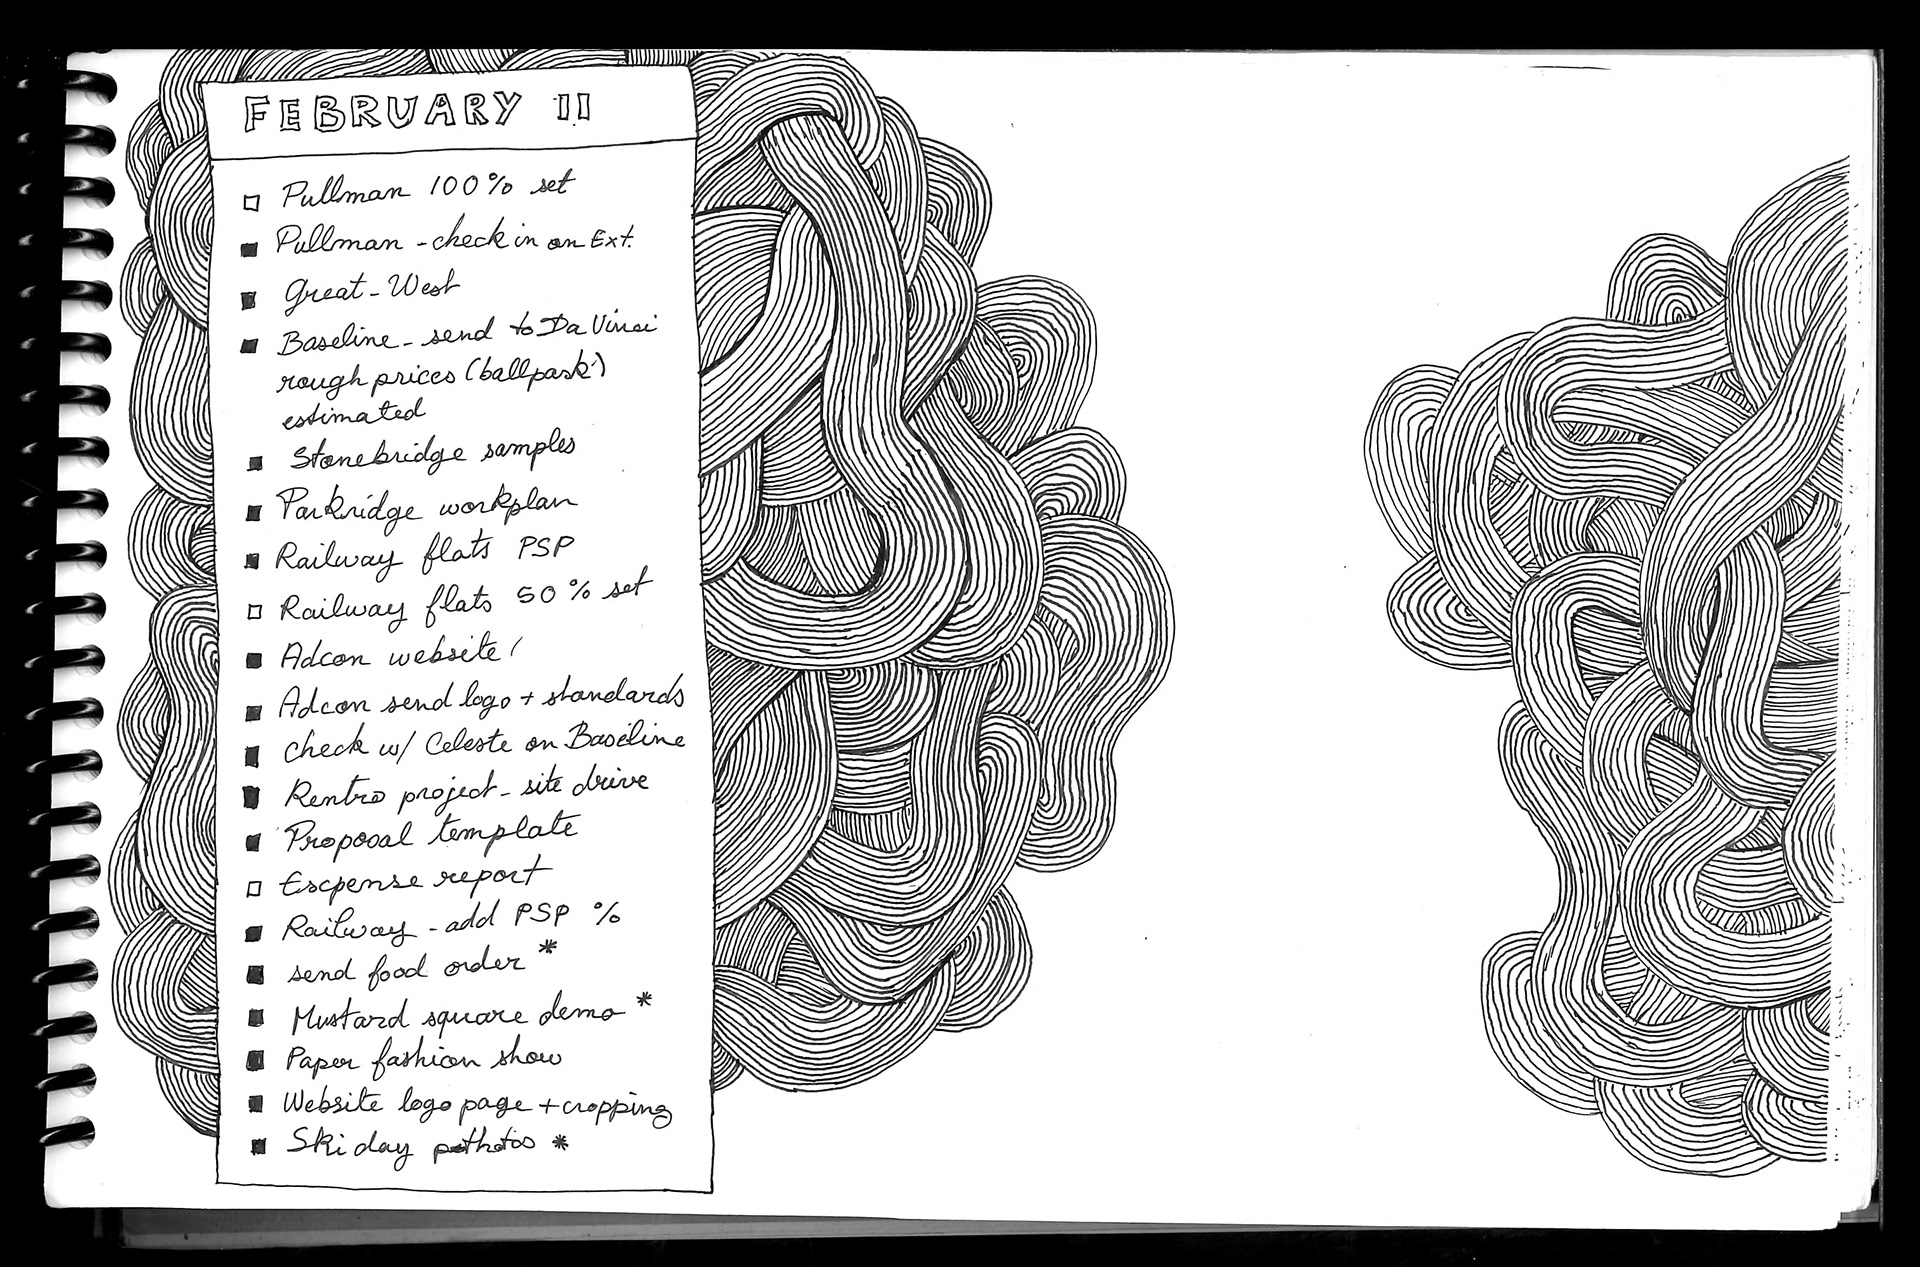 FEBRUARY 11
Pullman 100% set
Pullman - check in on Ext.
Great-West
Baseline - send to Da Vinci
rough prices (ballpark)
estimated
Stonebridge samples
Parkridge workplan
Railway flats PSP
Railway flats 50% set
Adcon website
Adcon send logo + standards
check w/ Celeste on Baseline
Rentro project - site drive
Proposal template
Escpense report
Railway - add PSP %
send food order *
Mustard square demo *
Paper fashion show
Website logo page + cropping
Ski day *